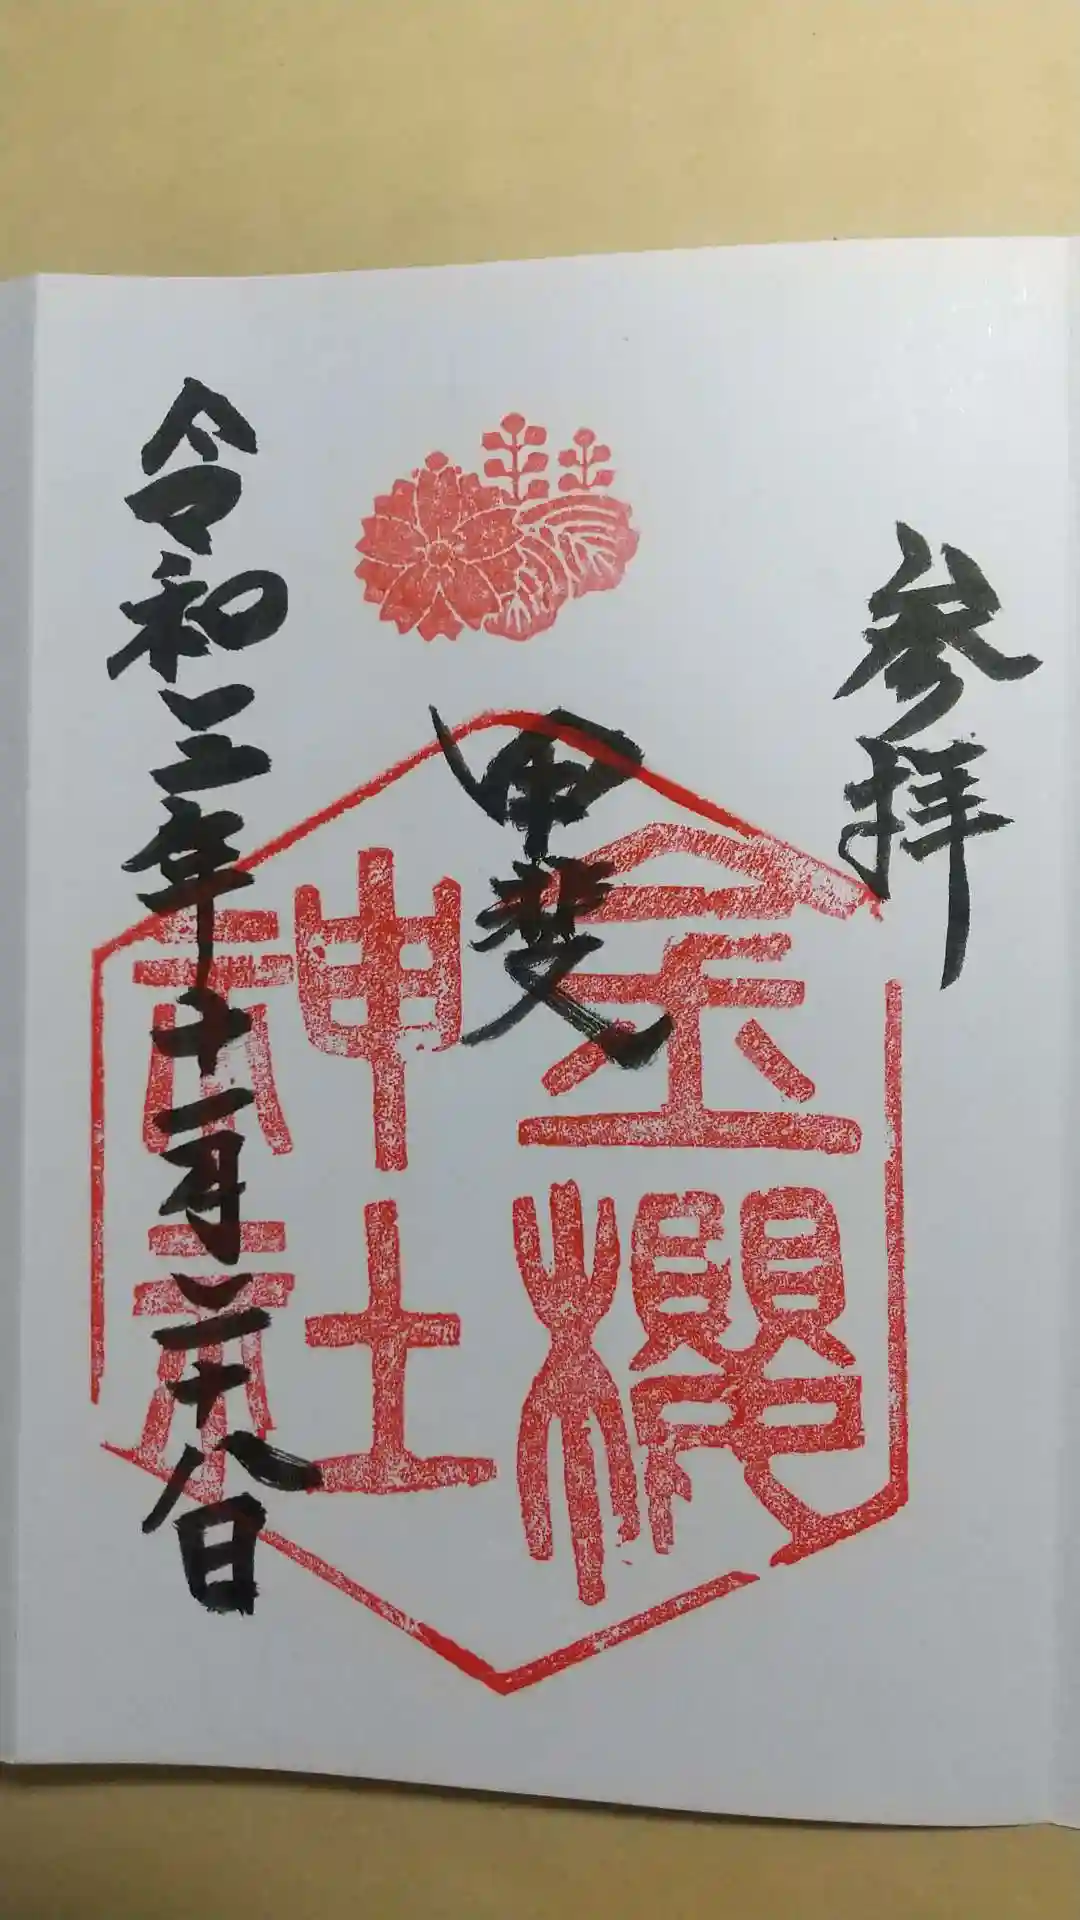 参拝
甲斐
金櫻
神社
令和三年十一月二十八日